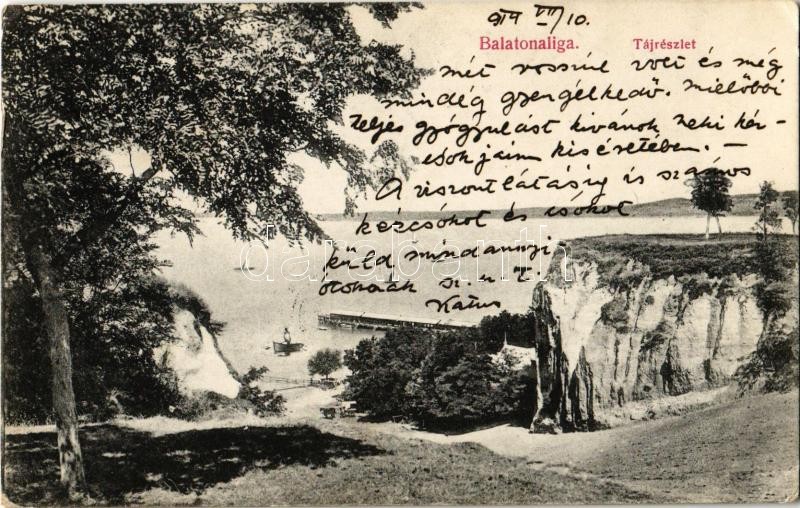 914 VII/10.
Balatonaliga. Tájrészlet
mét rosszúl volt és még
mindég gyengélkedő. Mielőbbi
teljes gyógyulást kivánok neki kér-
kíséretében. —
A viszontlátásig is számos
kézcsókot és csókot
küld mindannyi
Katus
darabanth